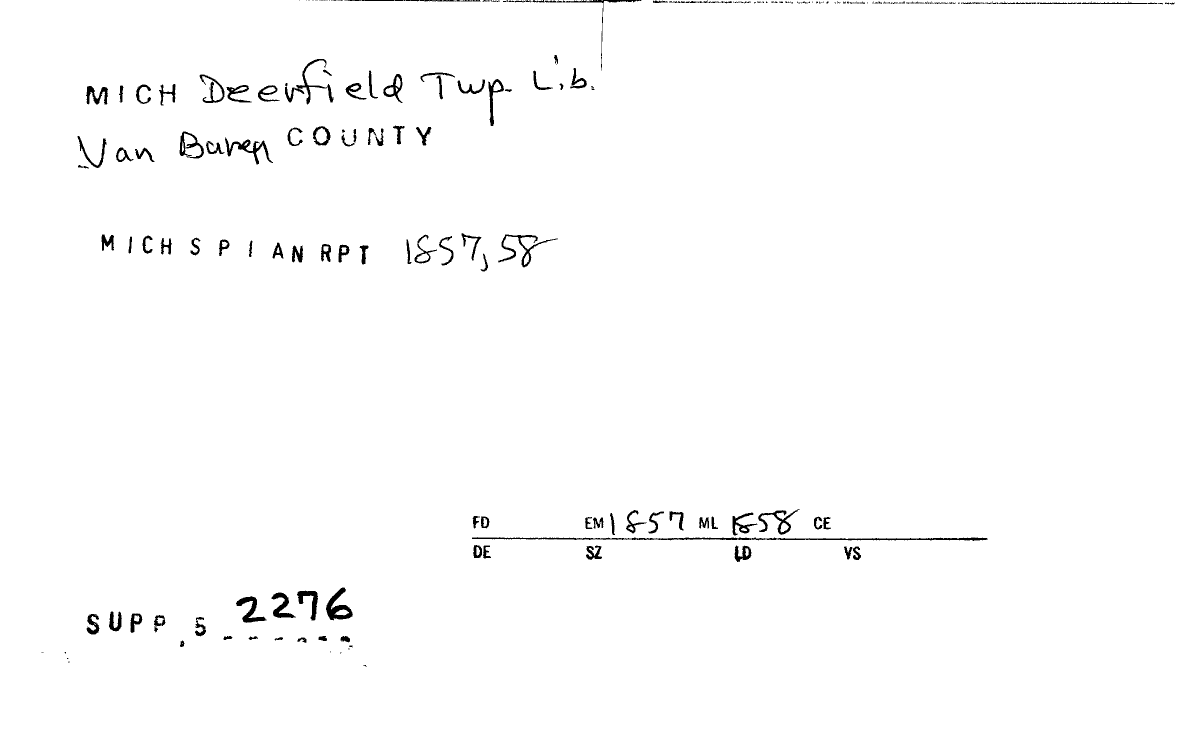 MICH Deerfield Twp. Lib.
Van Buren COUNTY
MICH S P I AN RPT 1857, 58
FD EM 1857 ML 1858 CE
DE SZ LD VS
SUPP. 5 2276